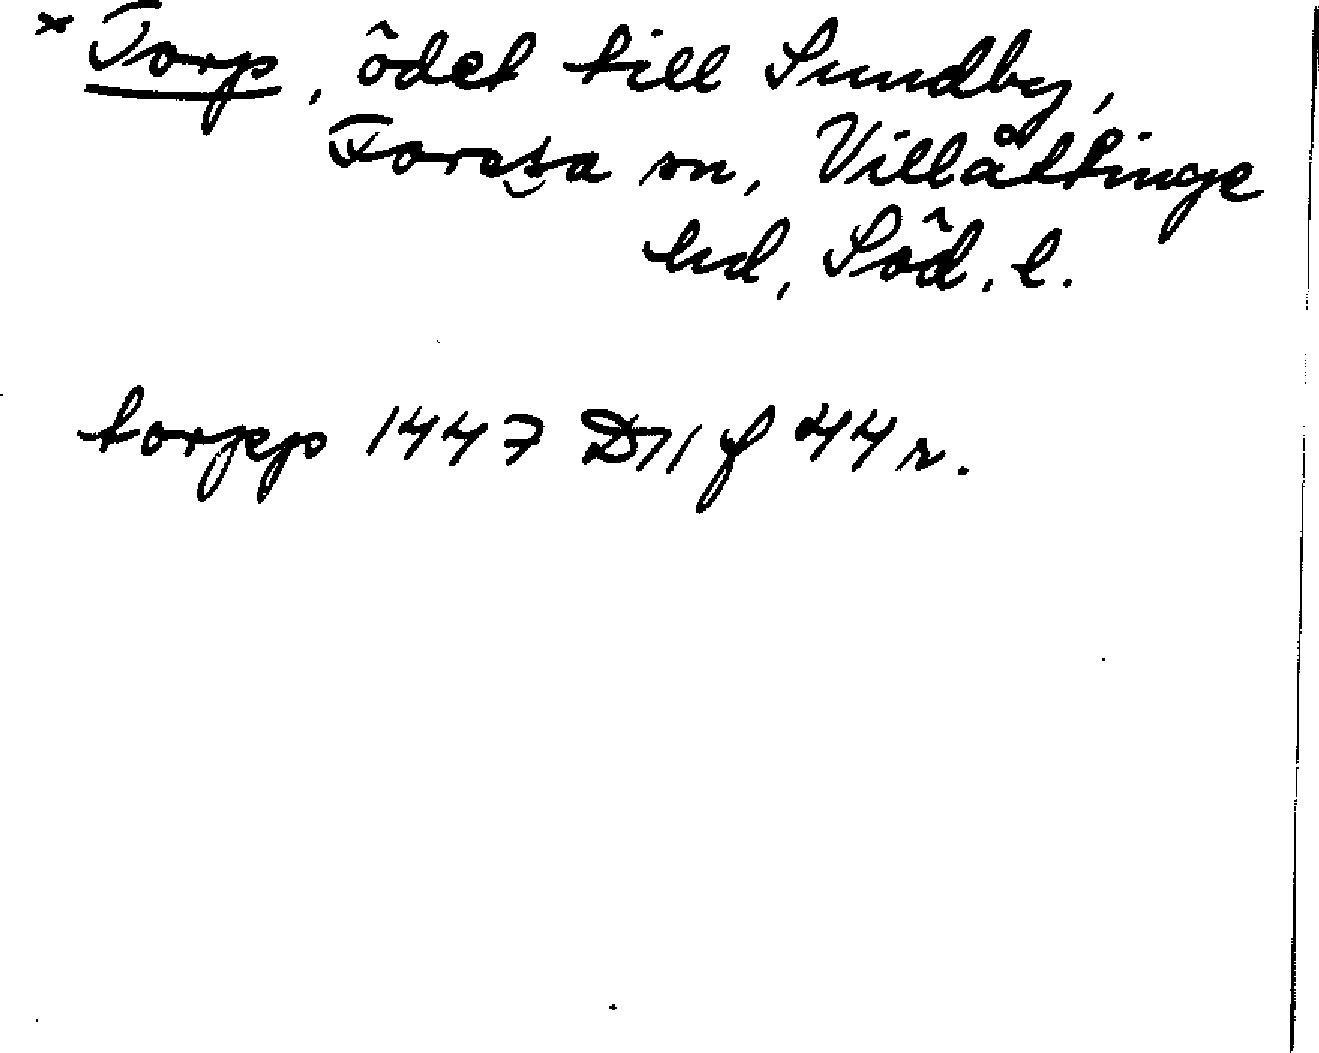 * Torp, ödet till Sundby,
Forssa sn, Villåttinge
hd, Söd. l.
torpp 1447 D11 f 44 r.